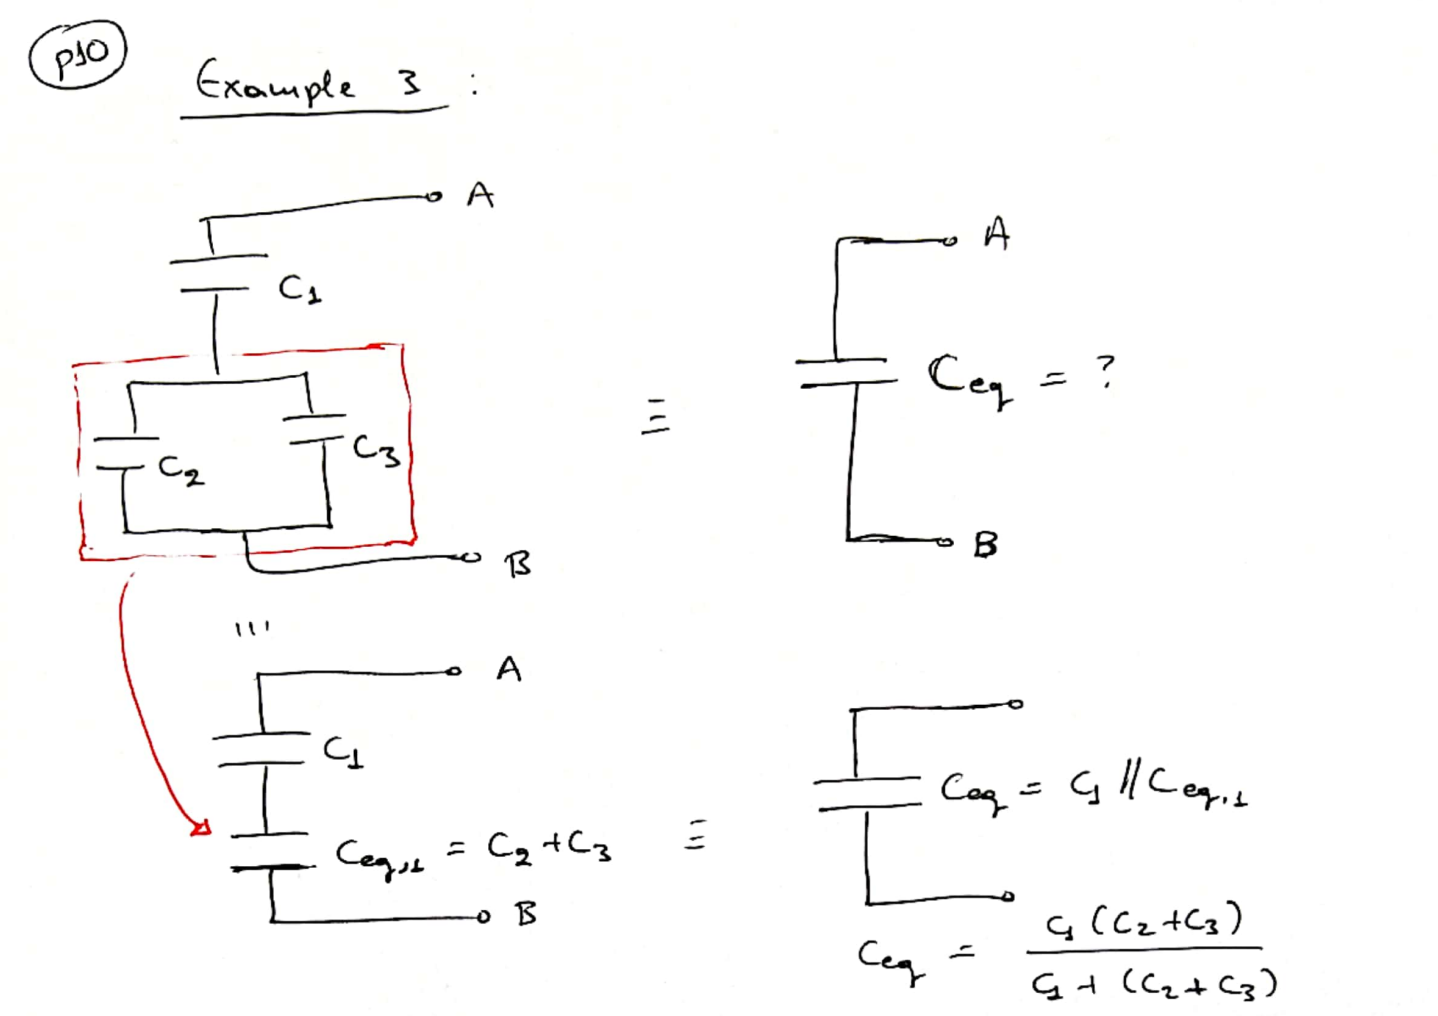 p10
Example 3 :
A
C1
C2
C3
B
≡
A
Ceq = ?
B
A
C1
Ceq,1 = C2 + C3
B
≡
Ceq = C1 // Ceq,1
Ceq = C1 (C2 + C3) / C1 + (C2 + C3)